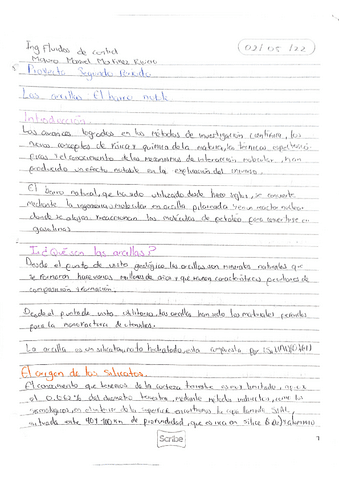 Ing Fluidos de control
(02/05/22)
Maestro Manuel Martinez
Proyecto Segundo Parcial
Las arcillas El barro noble
Introducción.
Los avances logrados en los métodos de investigación científica, los
nuevos conceptos de física y química de la materia, las técnicas
y el conocimiento de los mecanismos de interacción molecular, han
producido un efecto notable en la exploración del universo.
El barro natural, que ha sido utilizado desde hace siglos, se convierte
mediante la ingeniería molecular en arcilla pilareada reactor nuclear
donde se alojan reaccionan las moléculas de petróleo para convertirse en
gasolinas
I. ¿Qué son las arcillas?
Desde el punto de vista geológico las arcillas son minerales naturales que
se formaron hace varios millones de años y que reunen características peculiares de
composición y formación.
Desde el punto de vista las arcillas han sido los materiales
para la manufactura de utensilios.
La arcilla es un silicato hidratado, esta por
El origen de los silicatos.
El conocimiento que tenemos de la corteza terrestre es muy limitado,
el del diametro terrestre, mediante metodos indirectos, como los
sismologicos, en el interior de la superficie encontramos la capa llamada SIAL,
situada entre 40 y 100 km de profundidad, que es rica en silice
Scribe